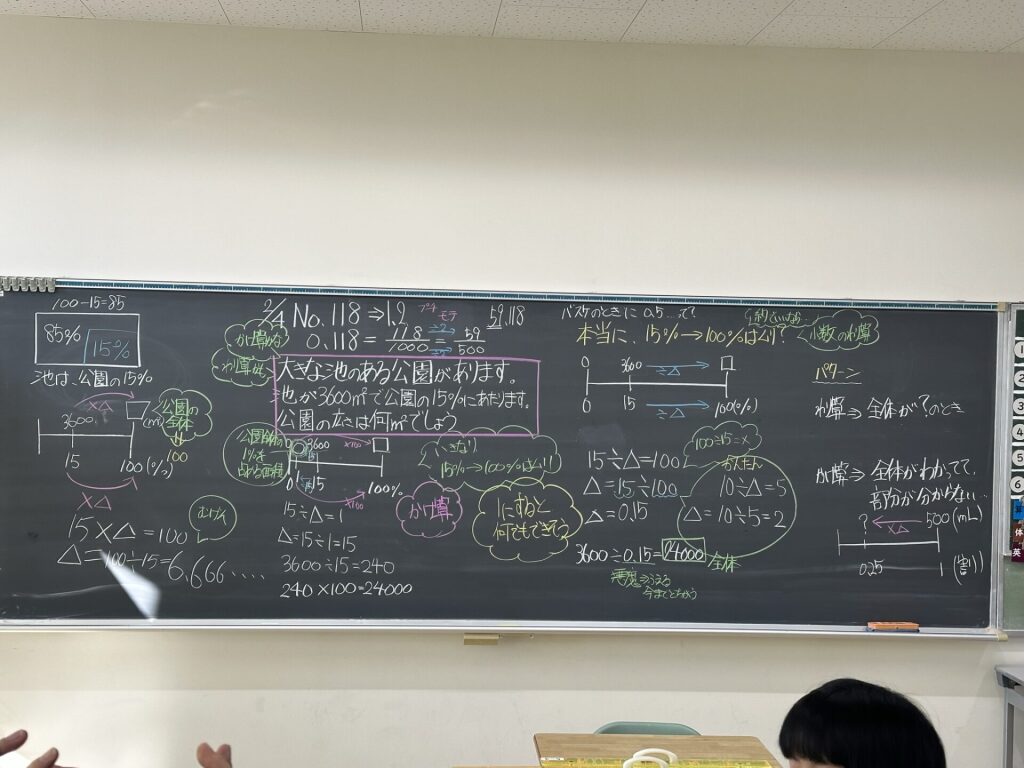 100-15=85
85%
15%
池は、公園の15%
×△
3600
(㎡)
15
100(%)
×△
公園の
全体
100
15×△=100
むげん
△=100÷15=6.666....
2/4 No.118⇒1,2
プチ
モラ
59,118
0.118=118/1000=59/500
÷2
÷2
かけ算
わり算
大きな池のある公園があります。
池が3600㎡で公園の15%にあたります。
公園の広さは何㎡でしょう
公園全体の
1%を
3600
×100
15
×100
100%
15÷△=1
△=15÷1=15
3600÷15=240
240×100=24000
いきなり
15%→100%はムリ!!
かけ算
1にすると
何でもできそう
バスケのときに0.5...って
本当に、15%→100%はムリ?
小数のわり算
0
3600
÷△
0
15
÷△
100(%)
15÷△=100
△=15÷100
△=0.15
3600÷0.15=24000
全体
100÷15=×
かんたん
10÷△=5
△=10÷5=2
今までとちがう
パターン
わり算⇒全体が?のとき
かけ算⇒全体がわかってて、
部分が分からない...
?
×△
500(mL)
0.25
1(割)
1
2
3
4
5
6
算
体
英